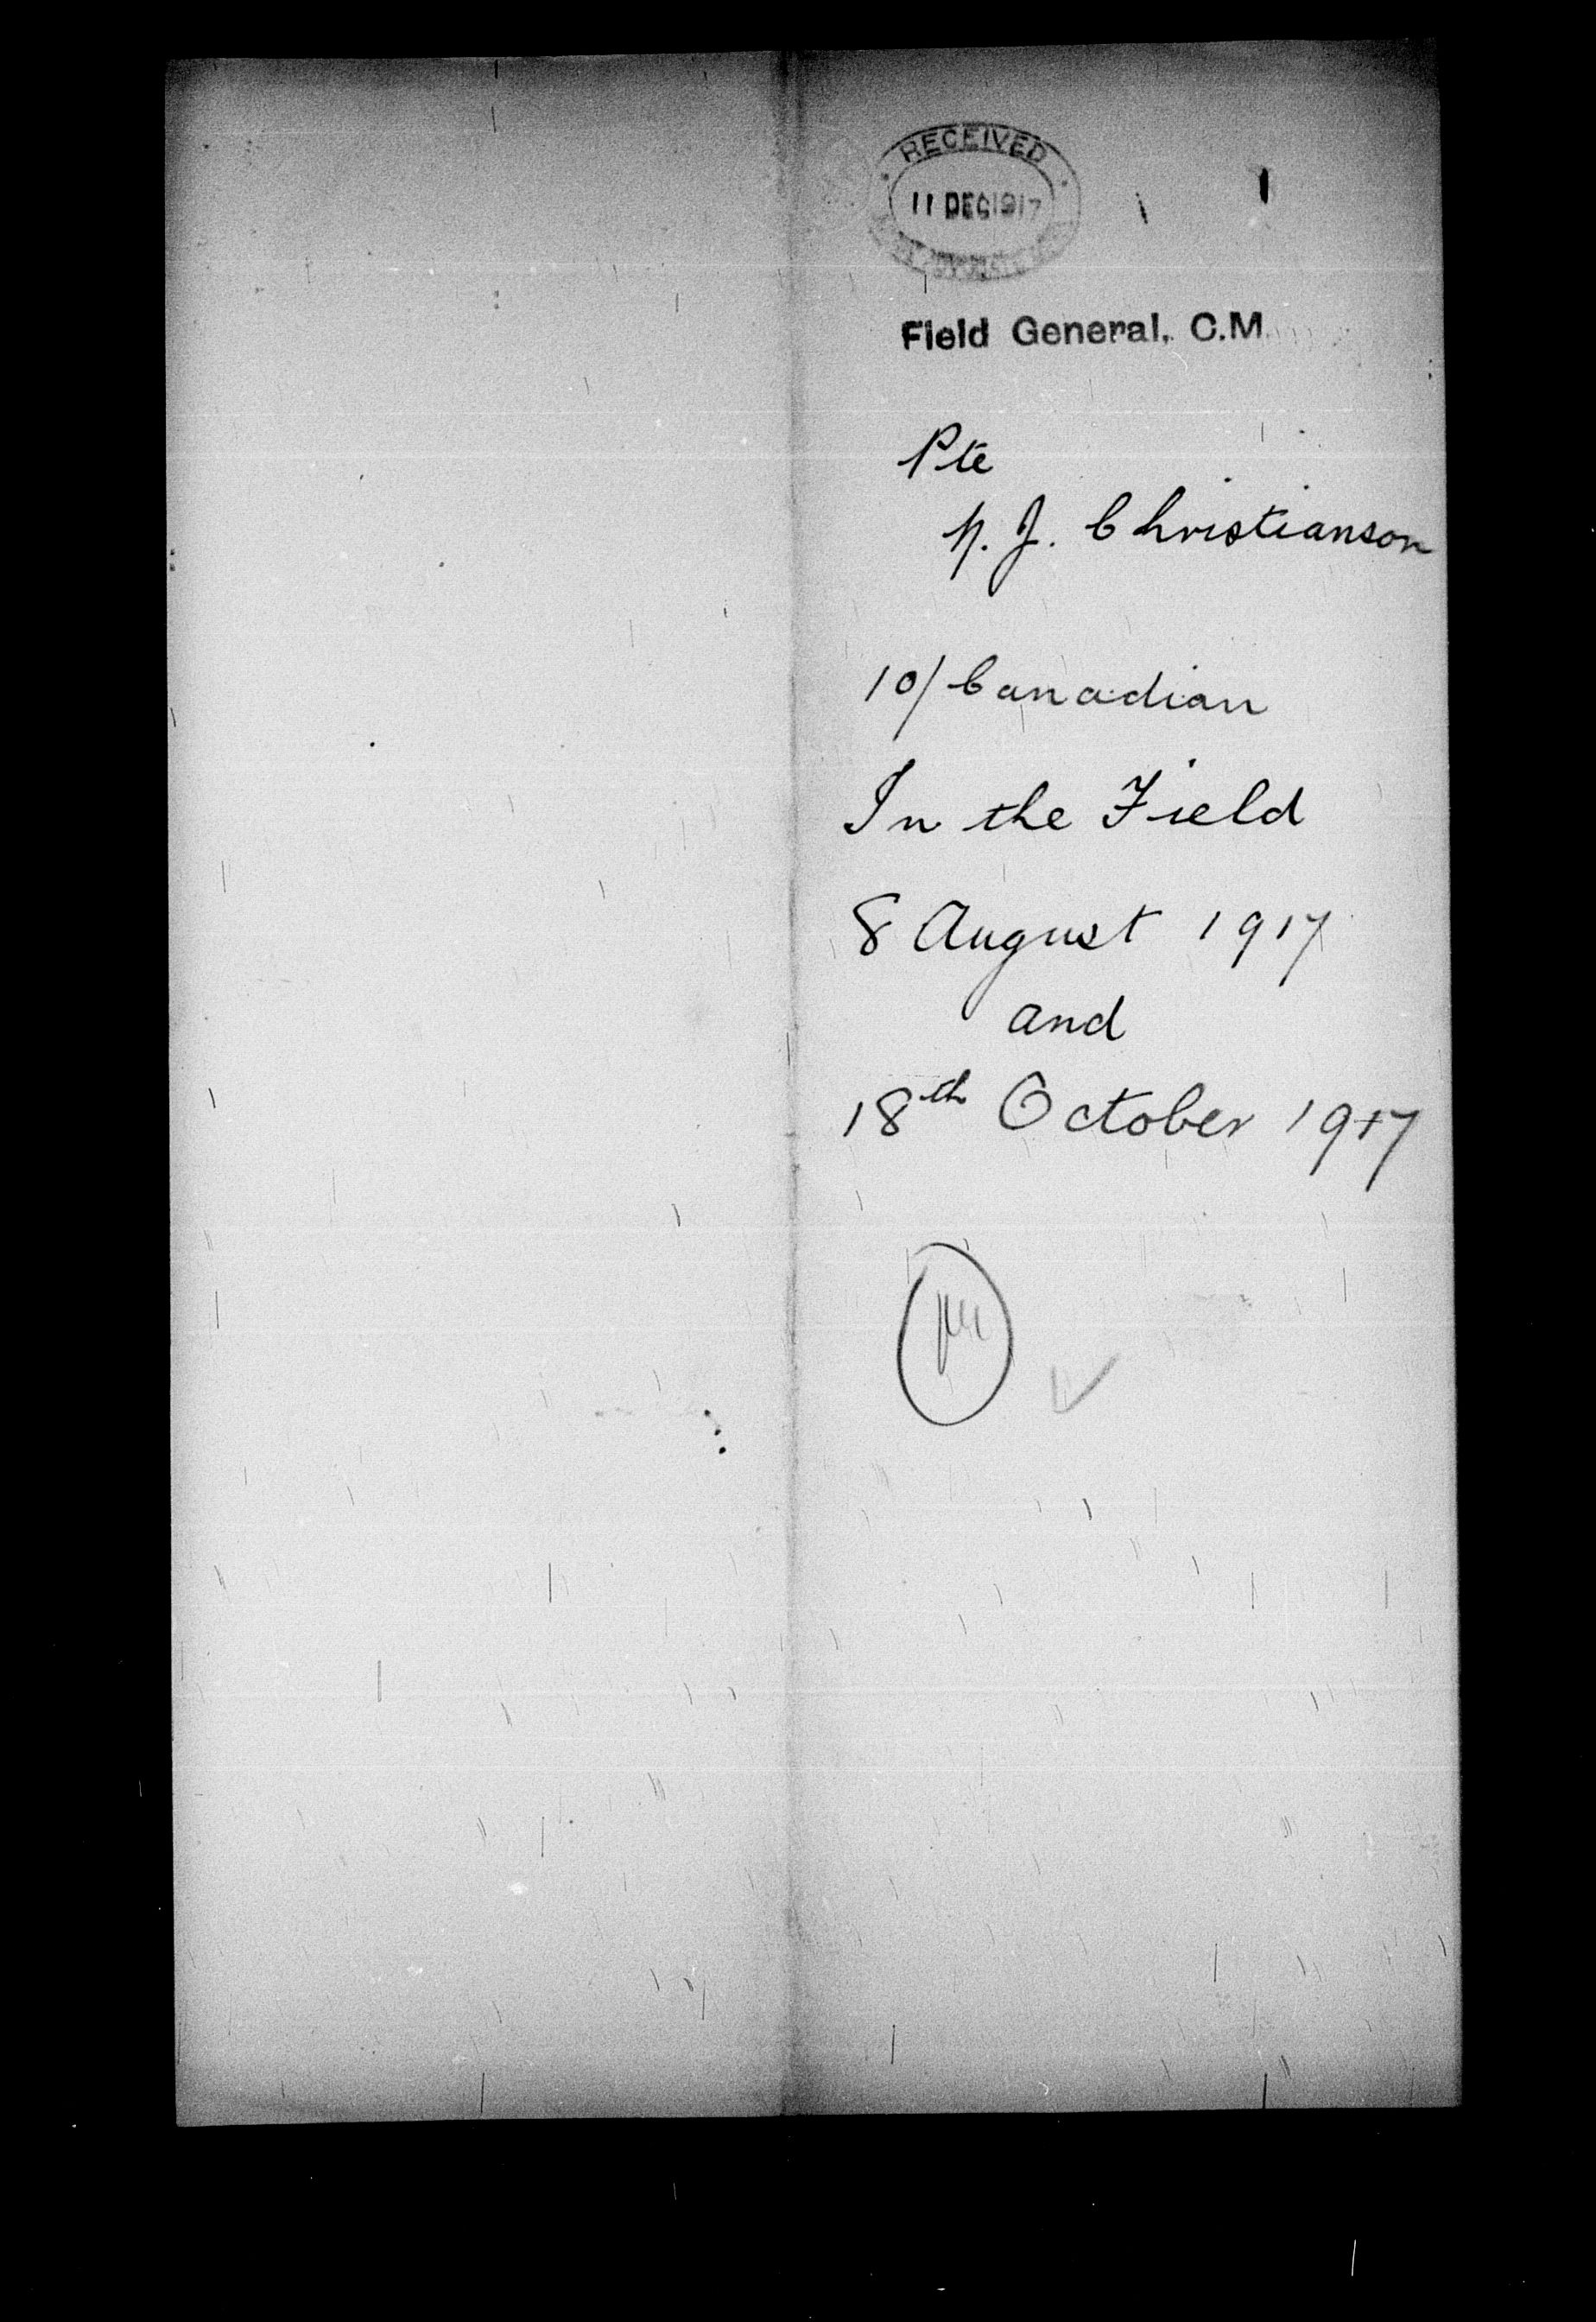 RECEIVED
11 DEC 1917
Field General, C.M.
Pte
N. J. Christianson
10/Canadian
In the Field
8 August 1917
and
18th October 1917